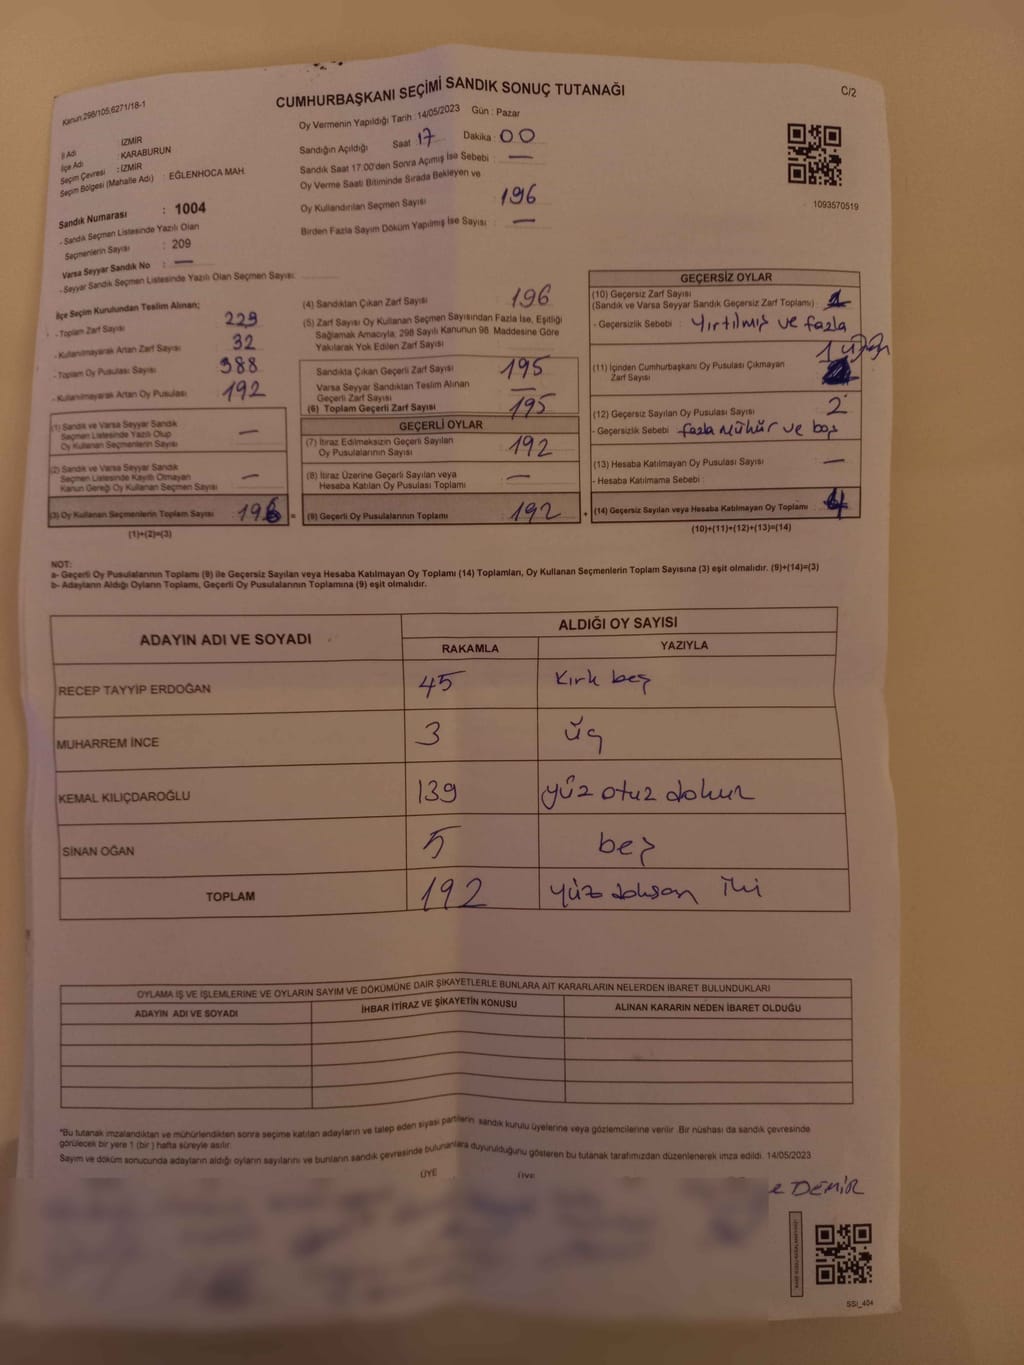 Kanun:298/105,6271/18-1
CUMHURBAŞKANI SEÇİMİ SANDIK SONUÇ TUTANAĞI
C/2
İl Adı : İZMİR
İlçe Adı : KARABURUN
Seçim Çevresi : İZMİR
Seçim Bölgesi (Mahalle Adı) : EĞLENHOCA MAH.
Sandık Numarası : 1004
- Sandık Seçmen Listesinde Yazılı Olan
Seçmenlerin Sayısı : 209
Varsa Seyyar Sandık No : —
- Seyyar Sandık Seçmen Listesinde Yazılı Olan Seçmen Sayısı:
Oy Vermenin Yapıldığı Tarih : 14/05/2023 Gün : Pazar
Sandığın Açıldığı Saat : 17 Dakika : 00
Sandık Saat 17:00'den Sonra Açımış İse Sebebi : —
Oy Verme Saati Bitiminde Sırada Bekleyen ve
Oy Kullandırılan Seçmen Sayısı : 196
Birden Fazla Sayım Döküm Yapılmış İse Sayısı : —
1093570519
İlçe Seçim Kurulundan Teslim Alınan;
- Toplam Zarf Sayısı 229
- Kullanılmayarak Artan Zarf Sayısı : 32
- Toplam Oy Pusulası Sayısı : 388
- Kullanılmayarak Artan Oy Pusulası : 192
(1) Sandık ve Varsa Seyyar Sandık
Seçmen Listesinde Yazılı Olup
Oy Kullanan Seçmenlerin Sayısı —
(2) Sandık ve Varsa Seyyar Sandık
Seçmen Listesinde Kayıtlı Olmayan
Kanun Gereği Oy Kullanan Seçmen Sayısı —
(3) Oy Kullanan Seçmenlerin Toplam Sayısı 196 =
(1)+(2)=(3)
(4) Sandıktan Çıkan Zarf Sayısı 196
(5) Zarf Sayısı Oy Kullanan Seçmen Sayısından Fazla İse, Eşitliği
Sağlamak Amacıyla, 298 Sayılı Kanunun 98. Maddesine Göre
Yakılarak Yok Edilen Zarf Sayısı
Sandıkta Çıkan Geçerli Zarf Sayısı : 195
Varsa Seyyar Sandıktan Teslim Alınan
Geçerli Zarf Sayısı : —
(6) Toplam Geçerli Zarf Sayısı 195
GEÇERLİ OYLAR
(7) İtiraz Edilmeksizin Geçerli Sayılan
Oy Pusulalarının Sayısı 192
(8) İtiraz Üzerine Geçerli Sayılan veya
Hesaba Katılan Oy Pusulası Toplamı —
(9) Geçerli Oy Pusulalarının Toplamı 192 +
GEÇERSİZ OYLAR
(10) Geçersiz Zarf Sayısı
(Sandık ve Varsa Seyyar Sandık Geçersiz Zarf Toplamı) : 1
- Geçersizlik Sebebi : Yırtılmış ve fazla
(11) İçinden Cumhurbaşkanı Oy Pusulası Çıkmayan
Zarf Sayısı
(12) Geçersiz Sayılan Oy Pusulası Sayısı : 2
- Geçersizlik Sebebi : fazla mühür ve boş
(13) Hesaba Katılmayan Oy Pusulası Sayısı : —
- Hesaba Katılmama Sebebi :
(14) Geçersiz Sayılan veya Hesaba Katılmayan Oy Toplamı : 4
(10)+(11)+(12)+(13)=(14)
NOT:
a- Geçerli Oy Pusulalarının Toplamı (9) ile Geçersiz Sayılan veya Hesaba Katılmayan Oy Toplamı (14) Toplamları, Oy Kullanan Seçmenlerin Toplam Sayısına (3) eşit olmalıdır. (9)+(14)=(3)
b- Adayların Aldığı Oyların Toplamı, Geçerli Oy Pusulalarının Toplamına (9) eşit olmalıdır.
ADAYIN ADI VE SOYADI ALDIĞI OY SAYISI
RAKAMLA YAZIYLA
RECEP TAYYİP ERDOĞAN 45 Kırk beş
MUHARREM İNCE 3 üç
KEMAL KILIÇDAROĞLU 139 yüz otuz dokuz
SİNAN OĞAN 5 beş
TOPLAM 192 yüz doksan iki
OYLAMA İŞ VE İŞLEMLERİNE VE OYLARIN SAYIM VE DÖKÜMÜNE DAİR ŞİKAYETLERLE BUNLARA AİT KARARLARIN NELERDEN İBARET BULUNDUKLARI
ADAYIN ADI VE SOYADI İHBAR İTİRAZ VE ŞİKAYETİN KONUSU ALINAN KARARIN NEDEN İBARET OLDUĞU
"Bu tutanak imzalandıktan ve mühürlendikten sonra seçime katılan adayların ve talep eden siyasi partilerin sandık kurulu üyelerine veya gözlemcilerine verilir .Bir nüshası da sandık çevresinde
görülecek bir yere 1 (bir ) hafta süreyle asılır.
Sayım ve döküm sonucunda adayların aldığı oyların sayılarını ve bunların sandık çevresinde bulunanlara duyurulduğunu gösteren bu tutanak tarafımızdan düzenlenerek imza edildi. 14/05/2023
ÜYE ÜYE
DEMİR
SSI_404